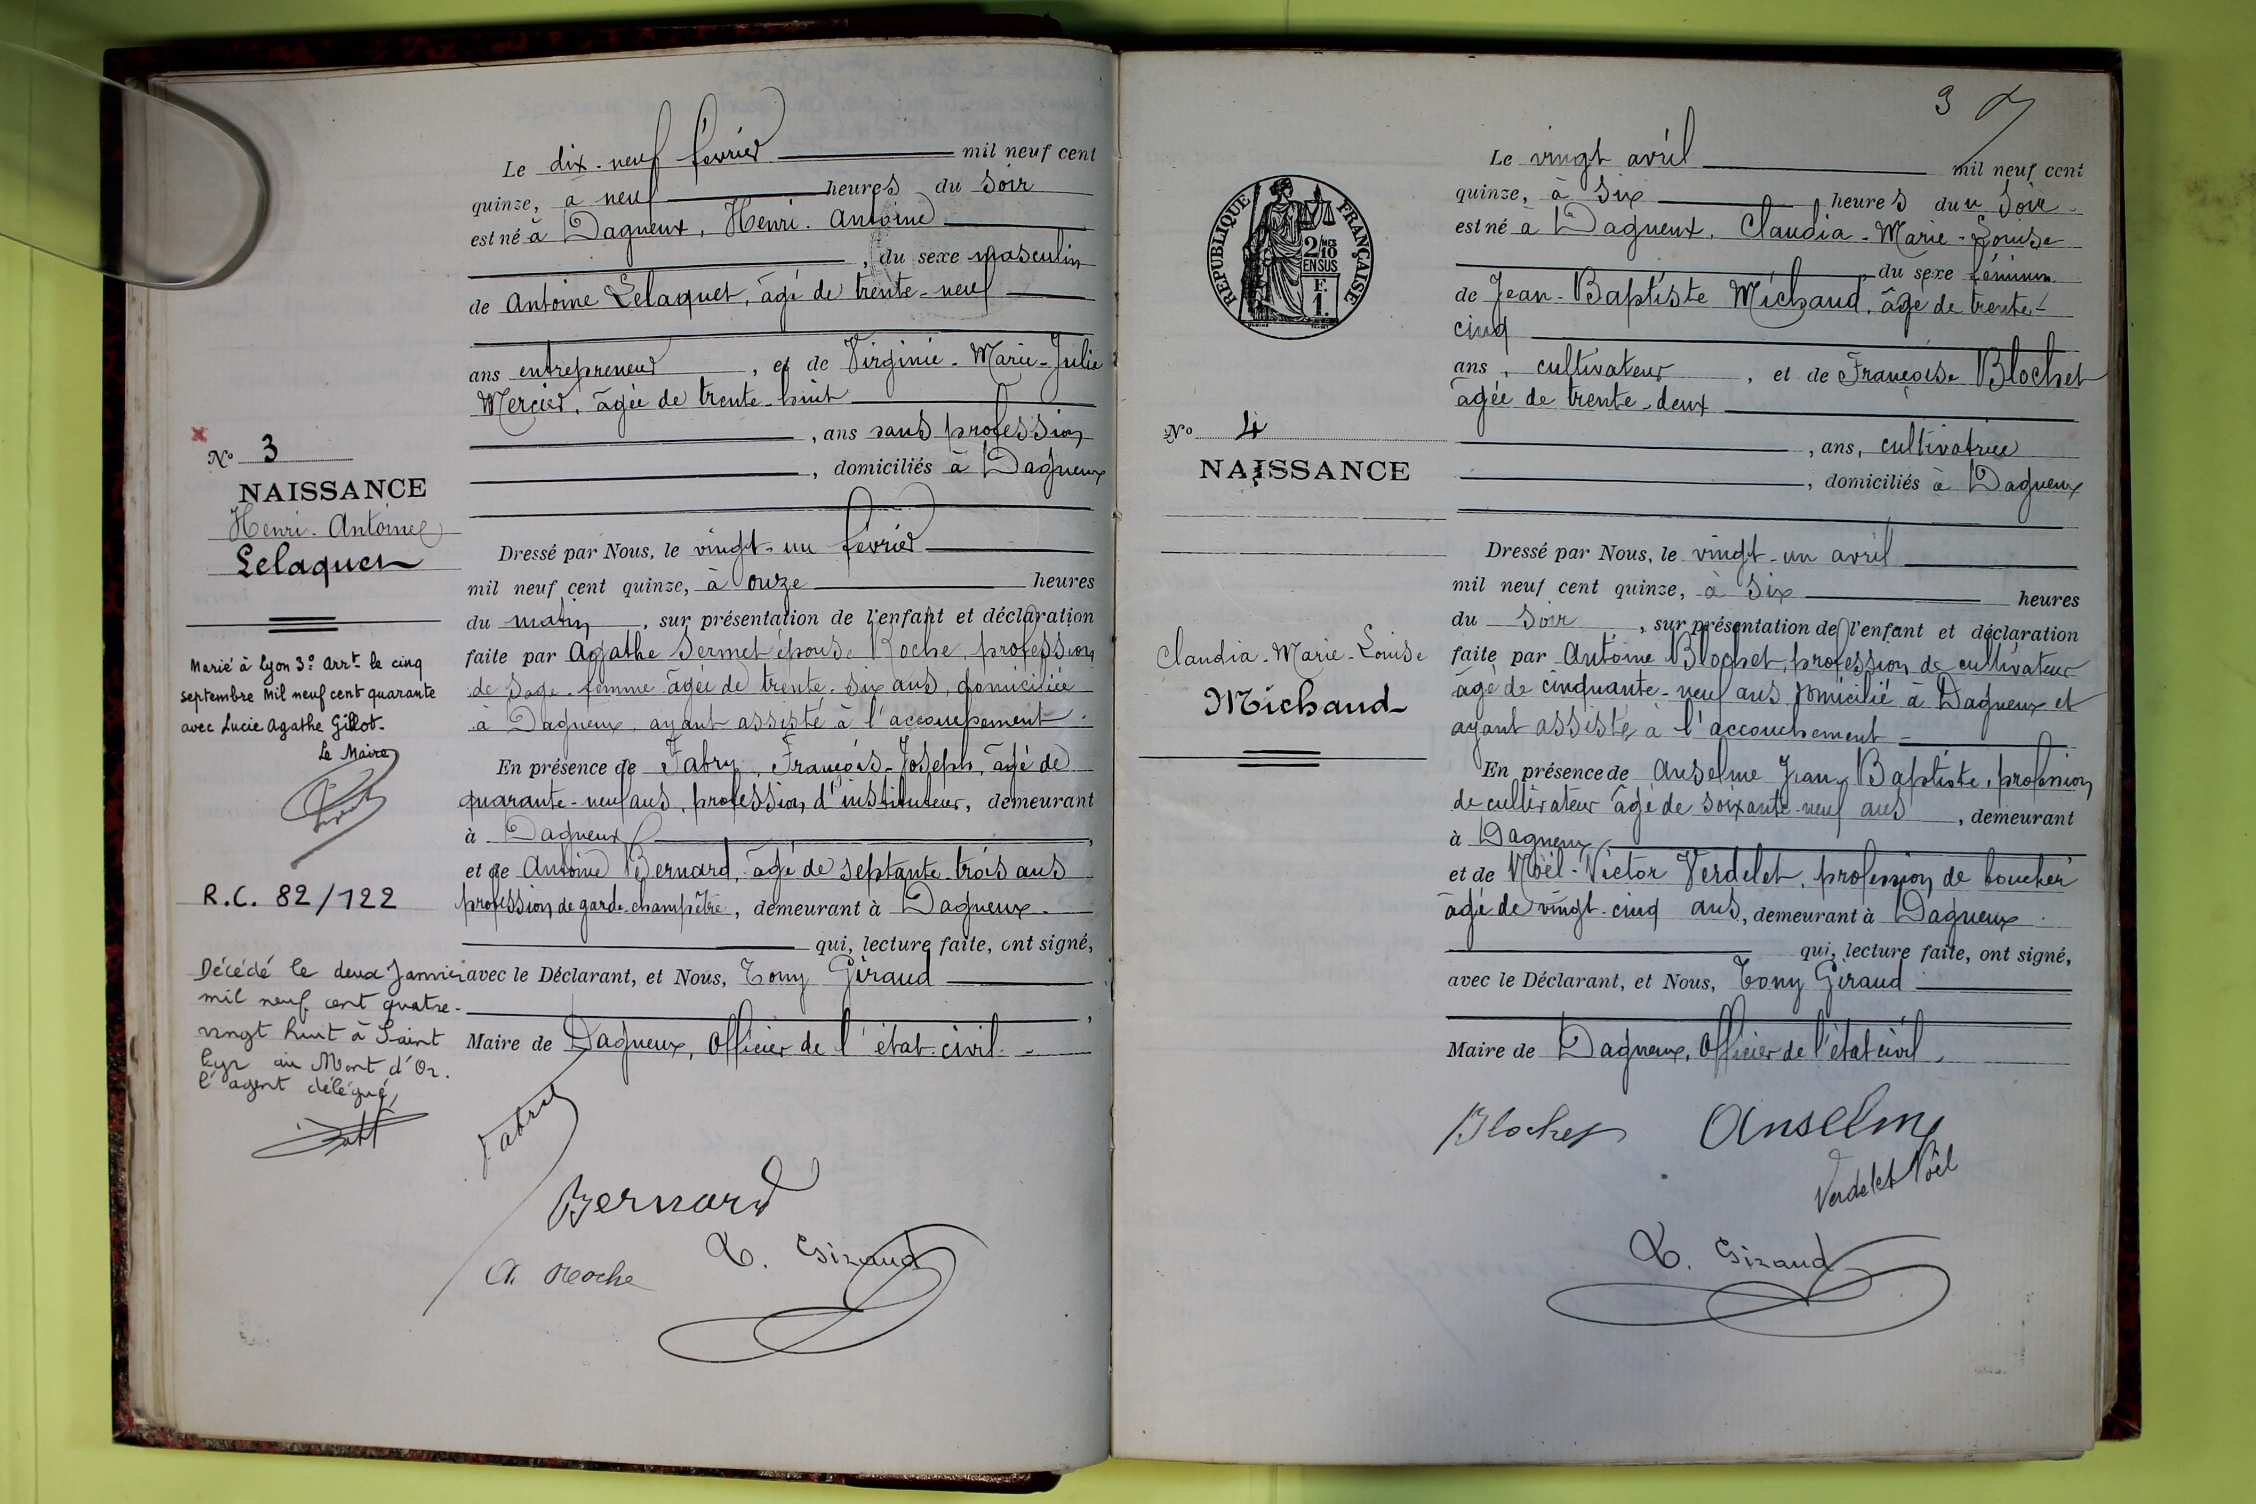 Le dix-neuf février mil neuf cent
quinze, à neuf heures du soir
est né à Dagneux, Henri-Antoine
, du sexe masculin
de Antoine Lelaquet, âgé de trente-neuf
ans entrepreneur, et de Virginie-Marie-Julie
Mercier, âgée de trente-huit
, ans sans profession
, domiciliés à Dagneux
N° 3
NAISSANCE
Henri-Antoine
Lelaquet
Dressé par Nous, le vingt-un février
mil neuf cent quinze, à onze heures
du matin, sur présentation de l'enfant et déclaration
faite par Agathe Sermet épouse Roche, profession
de Sage-femme âgée de trente-six ans, domiciliée
à Dagneux, ayant assisté à l'accouchement.
En présence de Fabry, François-Joseph, âgé de
quarante-neuf ans, profession d'instituteur, demeurant
à Dagneux
et de Antoine Bernard, âgé de septante-trois ans
profession de garde-champêtre, demeurant à Dagneux.
qui, lecture faite, ont signé,
avec le Déclarant, et Nous, Tony Giraud
Maire de Dagneux, Officier de l'état-civil.
Marié à Lyon 3e Arrt le cinq
septembre mil neuf cent quarante
avec Lucie Agathe Gillot.
Le Maire
R.C. 82/122
Décédé le deux Janvier
mil neuf cent quatre-
vingt huit à Saint
Cyr au Mont d'Or.
l'agent délégué,
Fabry
Bernard
A. Roche
T. Giraud
3
Le vingt avril mil neuf cent
quinze, à six heures du soir
est né à Dagneux, Claudia-Marie-Louise
du sexe féminin
de Jean-Baptiste Michaud, âgé de trente-
cinq
ans, cultivateur, et de Françoise Blochet
âgée de trente-deux
, ans, cultivatrice
, domiciliés à Dagneux
RÉPUBLIQUE FRANÇAISE
2/10MES
EN SUS
F.
1.
N° 4
NAISSANCE
Claudia-Marie-Louise
Michaud
Dressé par Nous, le vingt-un avril
mil neuf cent quinze, à six heures
du soir, sur présentation de l'enfant et déclaration
faite par Antoine Blochet, profession de cultivateur
âgé de cinquante-neuf ans domicilié à Dagneux et
ayant assisté à l'accouchement
En présence de Anselme Jean Baptiste, profession
de cultivateur âgé de soixante-neuf ans, demeurant
à Dagneux
et de Noël-Victor Verdelet, profession de boucher
âgé de vingt-cinq ans, demeurant à Dagneux.
qui, lecture faite, ont signé,
avec le Déclarant, et Nous, Tony Giraud
Maire de Dagneux, Officier de l'état civil.
Blochet
Anselme
Verdelet Noël
T. Giraud